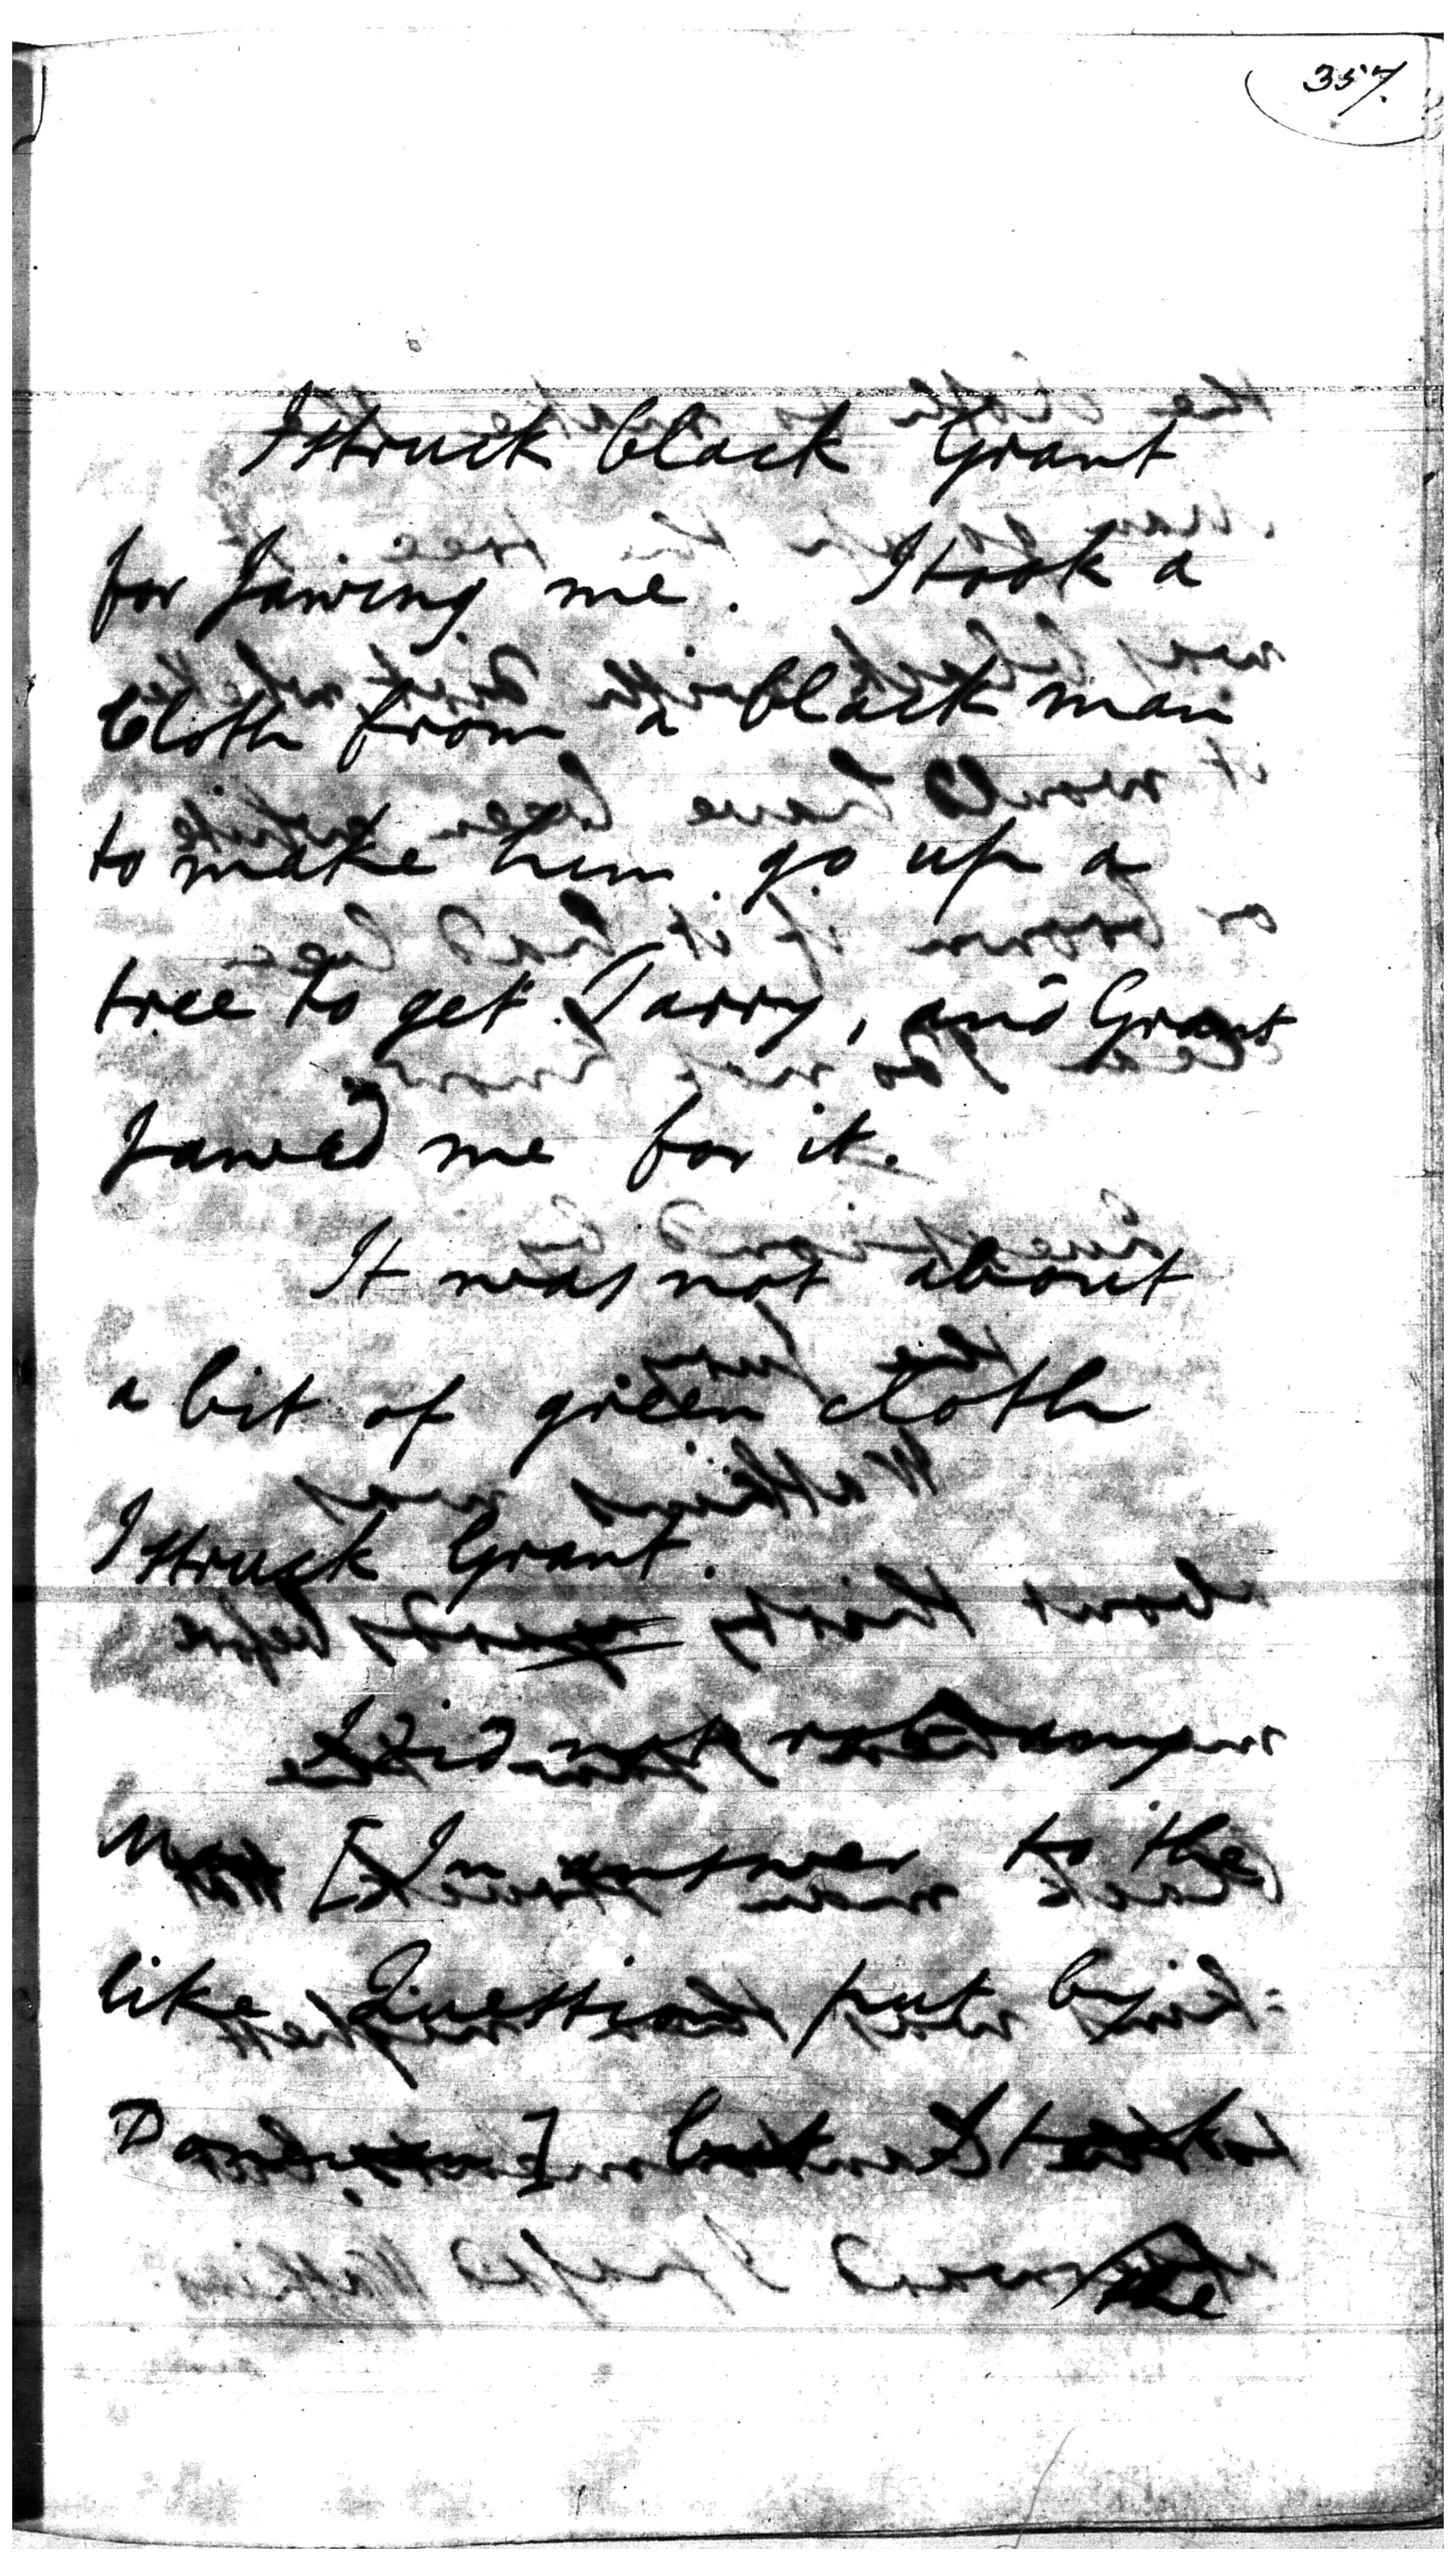 357.
I struck black Grant
for Jawing me. I took a
Cloth from a black man
to make him go up a
tree to get Tarry, and Grant
Jawed me for it.
It was not about
a bit of green cloth
I struck Grant.
I did not
[In answer to the
like Question put by
] but I took
the